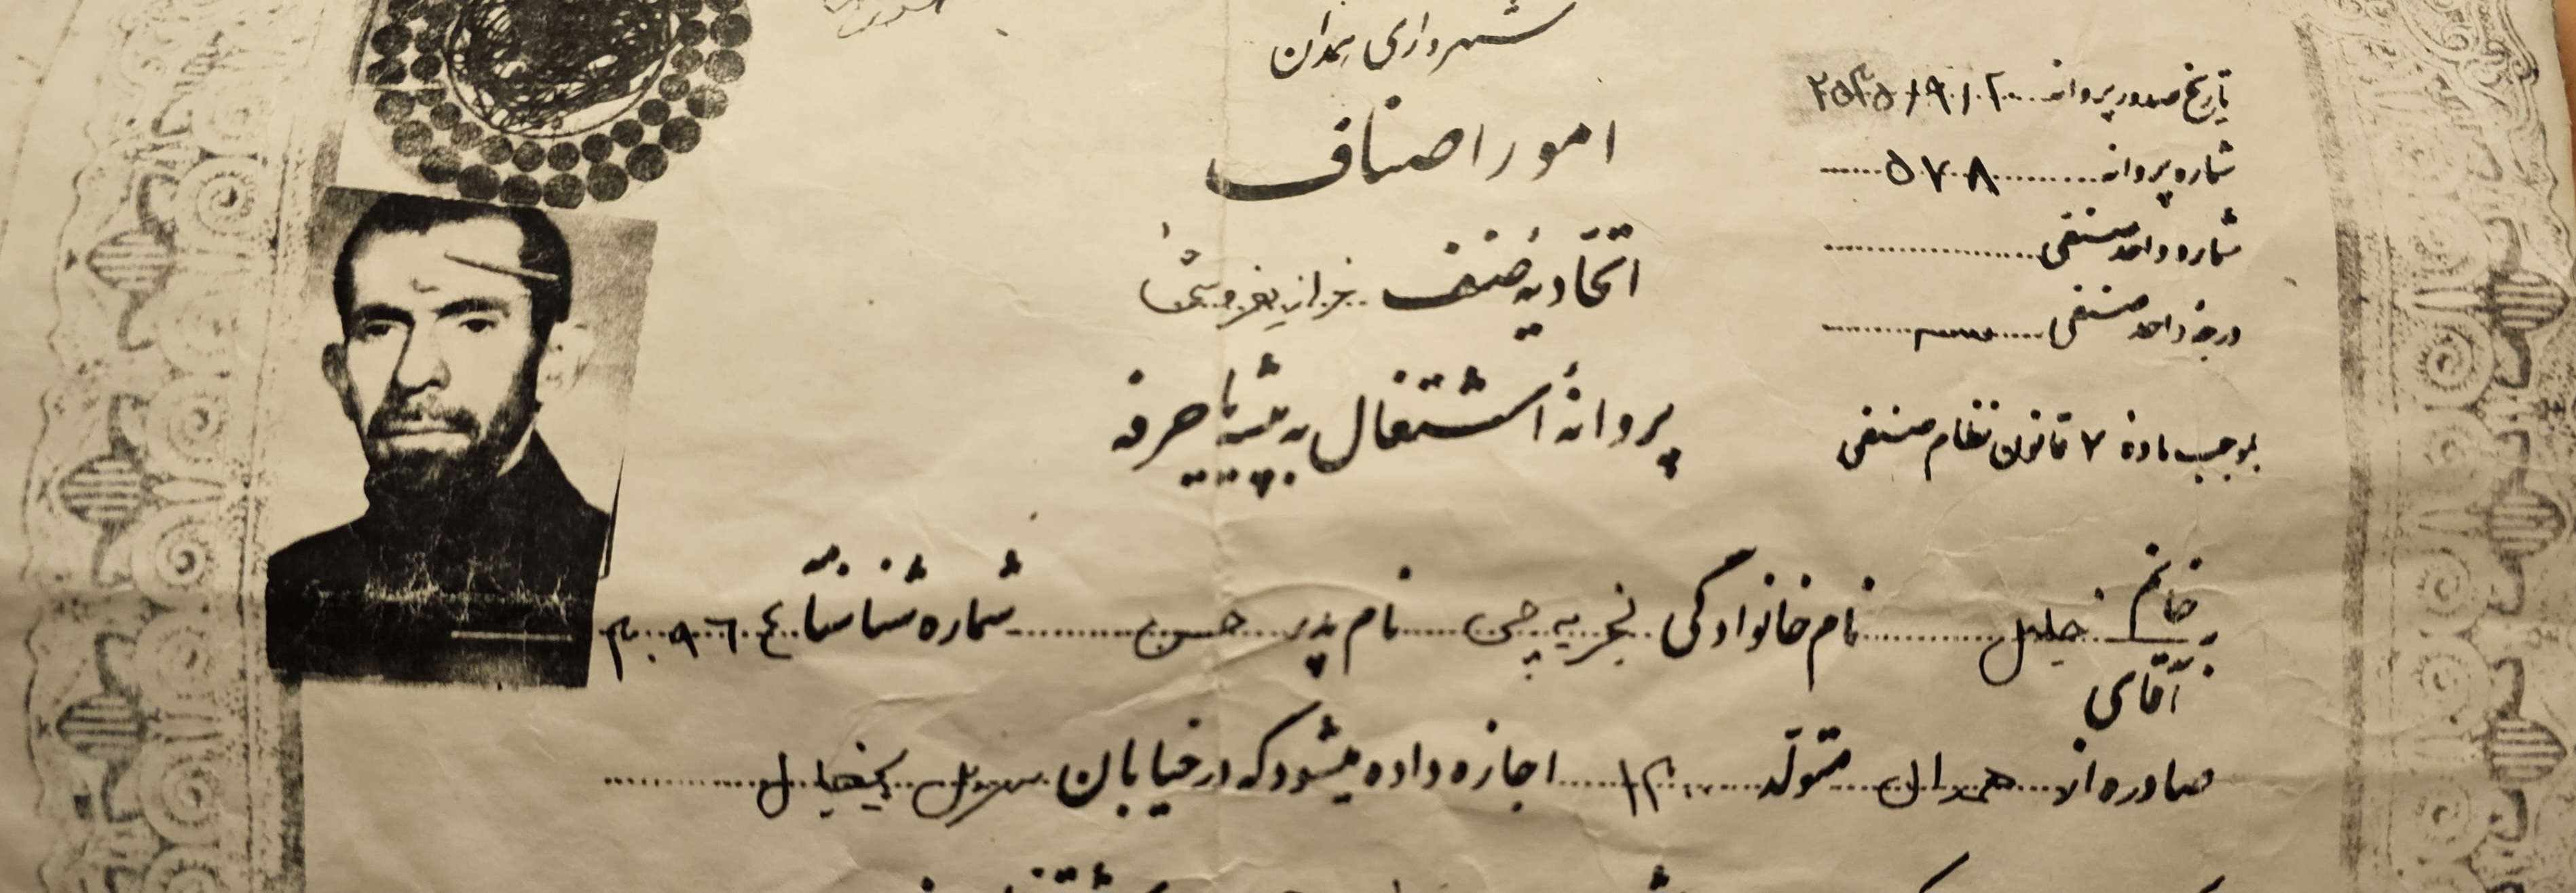 شهرداری همدان
امور اصناف
اتحادیه صنف خرازیفروشی
پروانهٔ اشتغال به پیشه یا حرفه
تاریخ صدور پروانه ۲۵۳۵/۹/۲
شماره پروانه ۵۷۸
شماره واحد صنفی
درجه واحد صنفی
بموجب ماده ۷ قانون نظام صنفی
به خانم
آقای
خلیل نام خانوادگی نام پدر حسن شماره شناسنامه
صادره از همدان متولد اجازه داده میشود که در خیابان سرپل یخچال